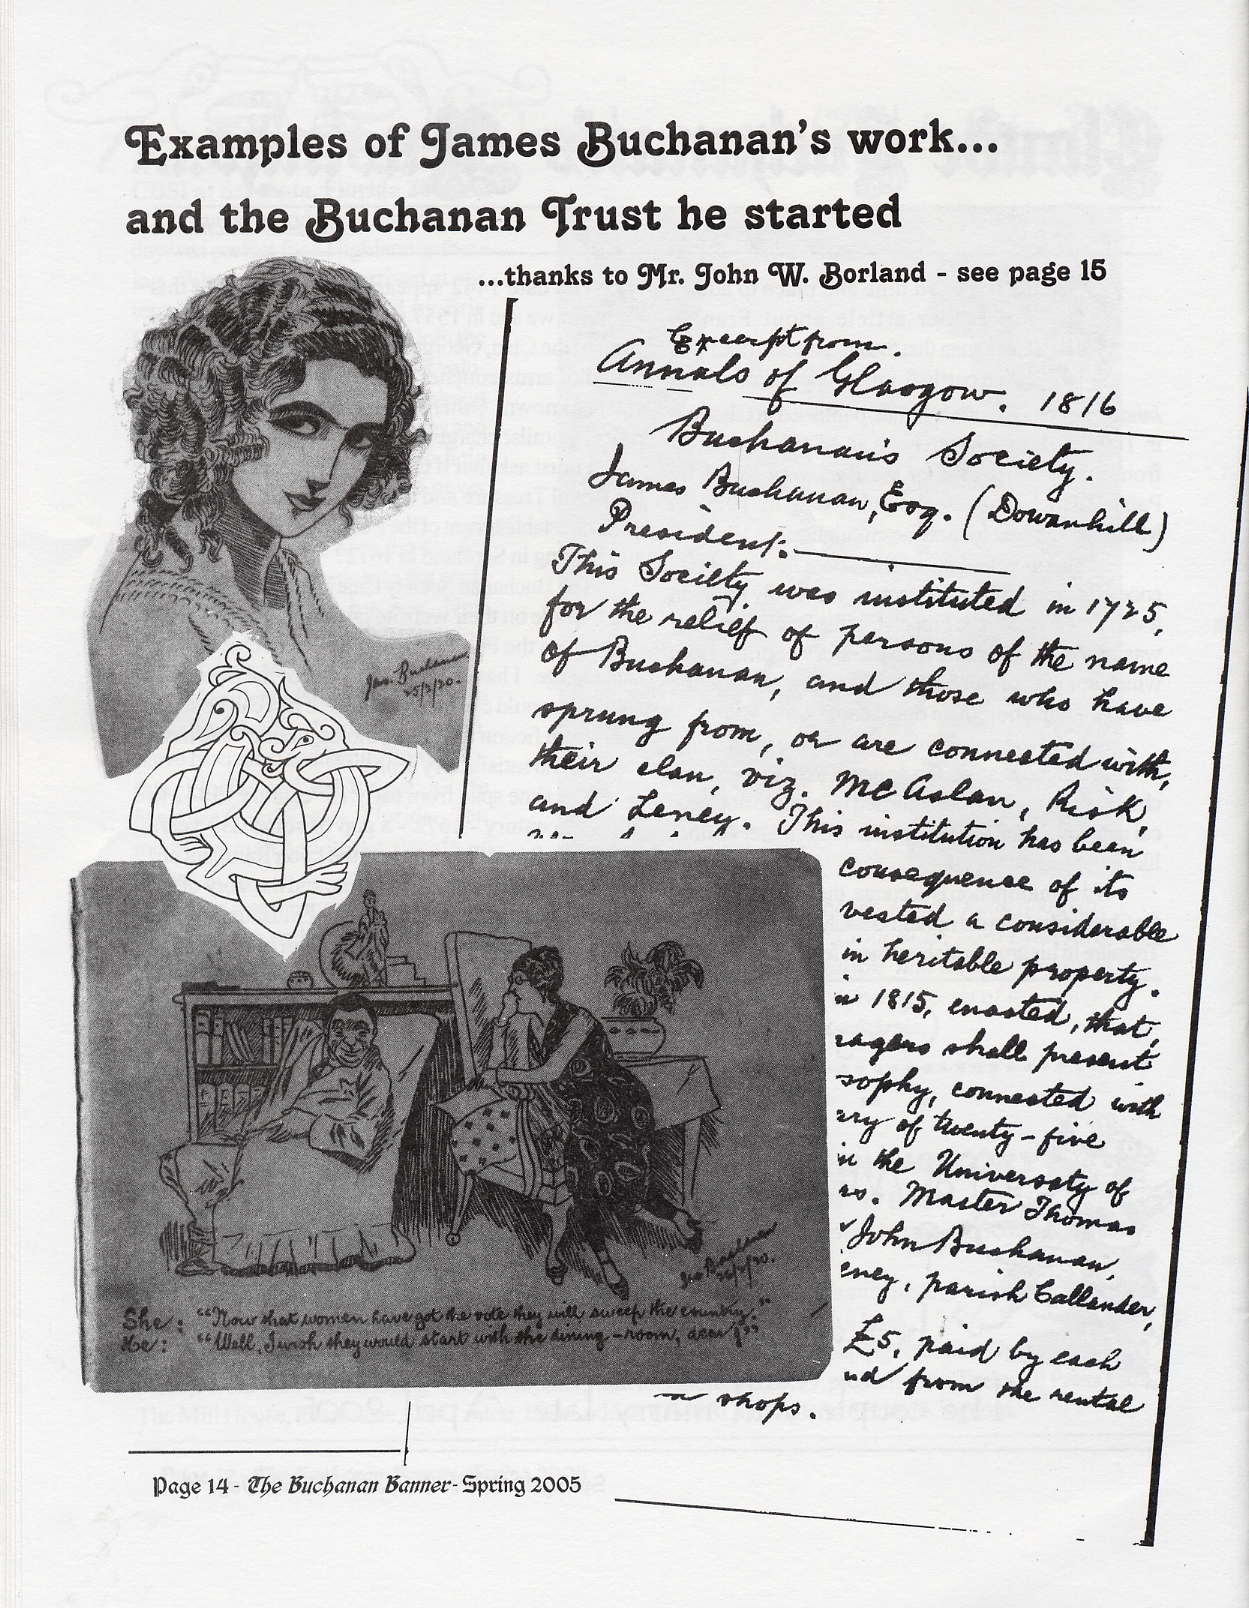 Examples of James Buchanan's work...
and the Buchanan Trust he started
...thanks to Mr. John W. Borland - see page 15
Jas. Buchanan
25/3/20.
Excerpt from.
Annals of Glasgow. 1816
Buchanan's Society.
James Buchanan, Esq. (Dowanhill)
President.
This Society was instituted in 1725,
for the relief of persons of the name
of Buchanan, and those who have
sprung from, or are connected with,
their clan, viz. McAslan, Risk,
and Leney. This institution has been
consequence of its
vested a considerable
in heritable property.
in 1815, enacted, that,
nagers shall present
sophy, connected with
ary of twenty-five
in the University of
rs. Master Thomas
John Buchanan,
eney, parish Callander,
£5, paid by each
nd from the rental
shops.
Jas Buchanan
She: "Now that women have got the vote they will sweep the country."
He: "Well, I wish they would start with the dining-room, dear!"
Page 14 - The Buchanan Banner - Spring 2005